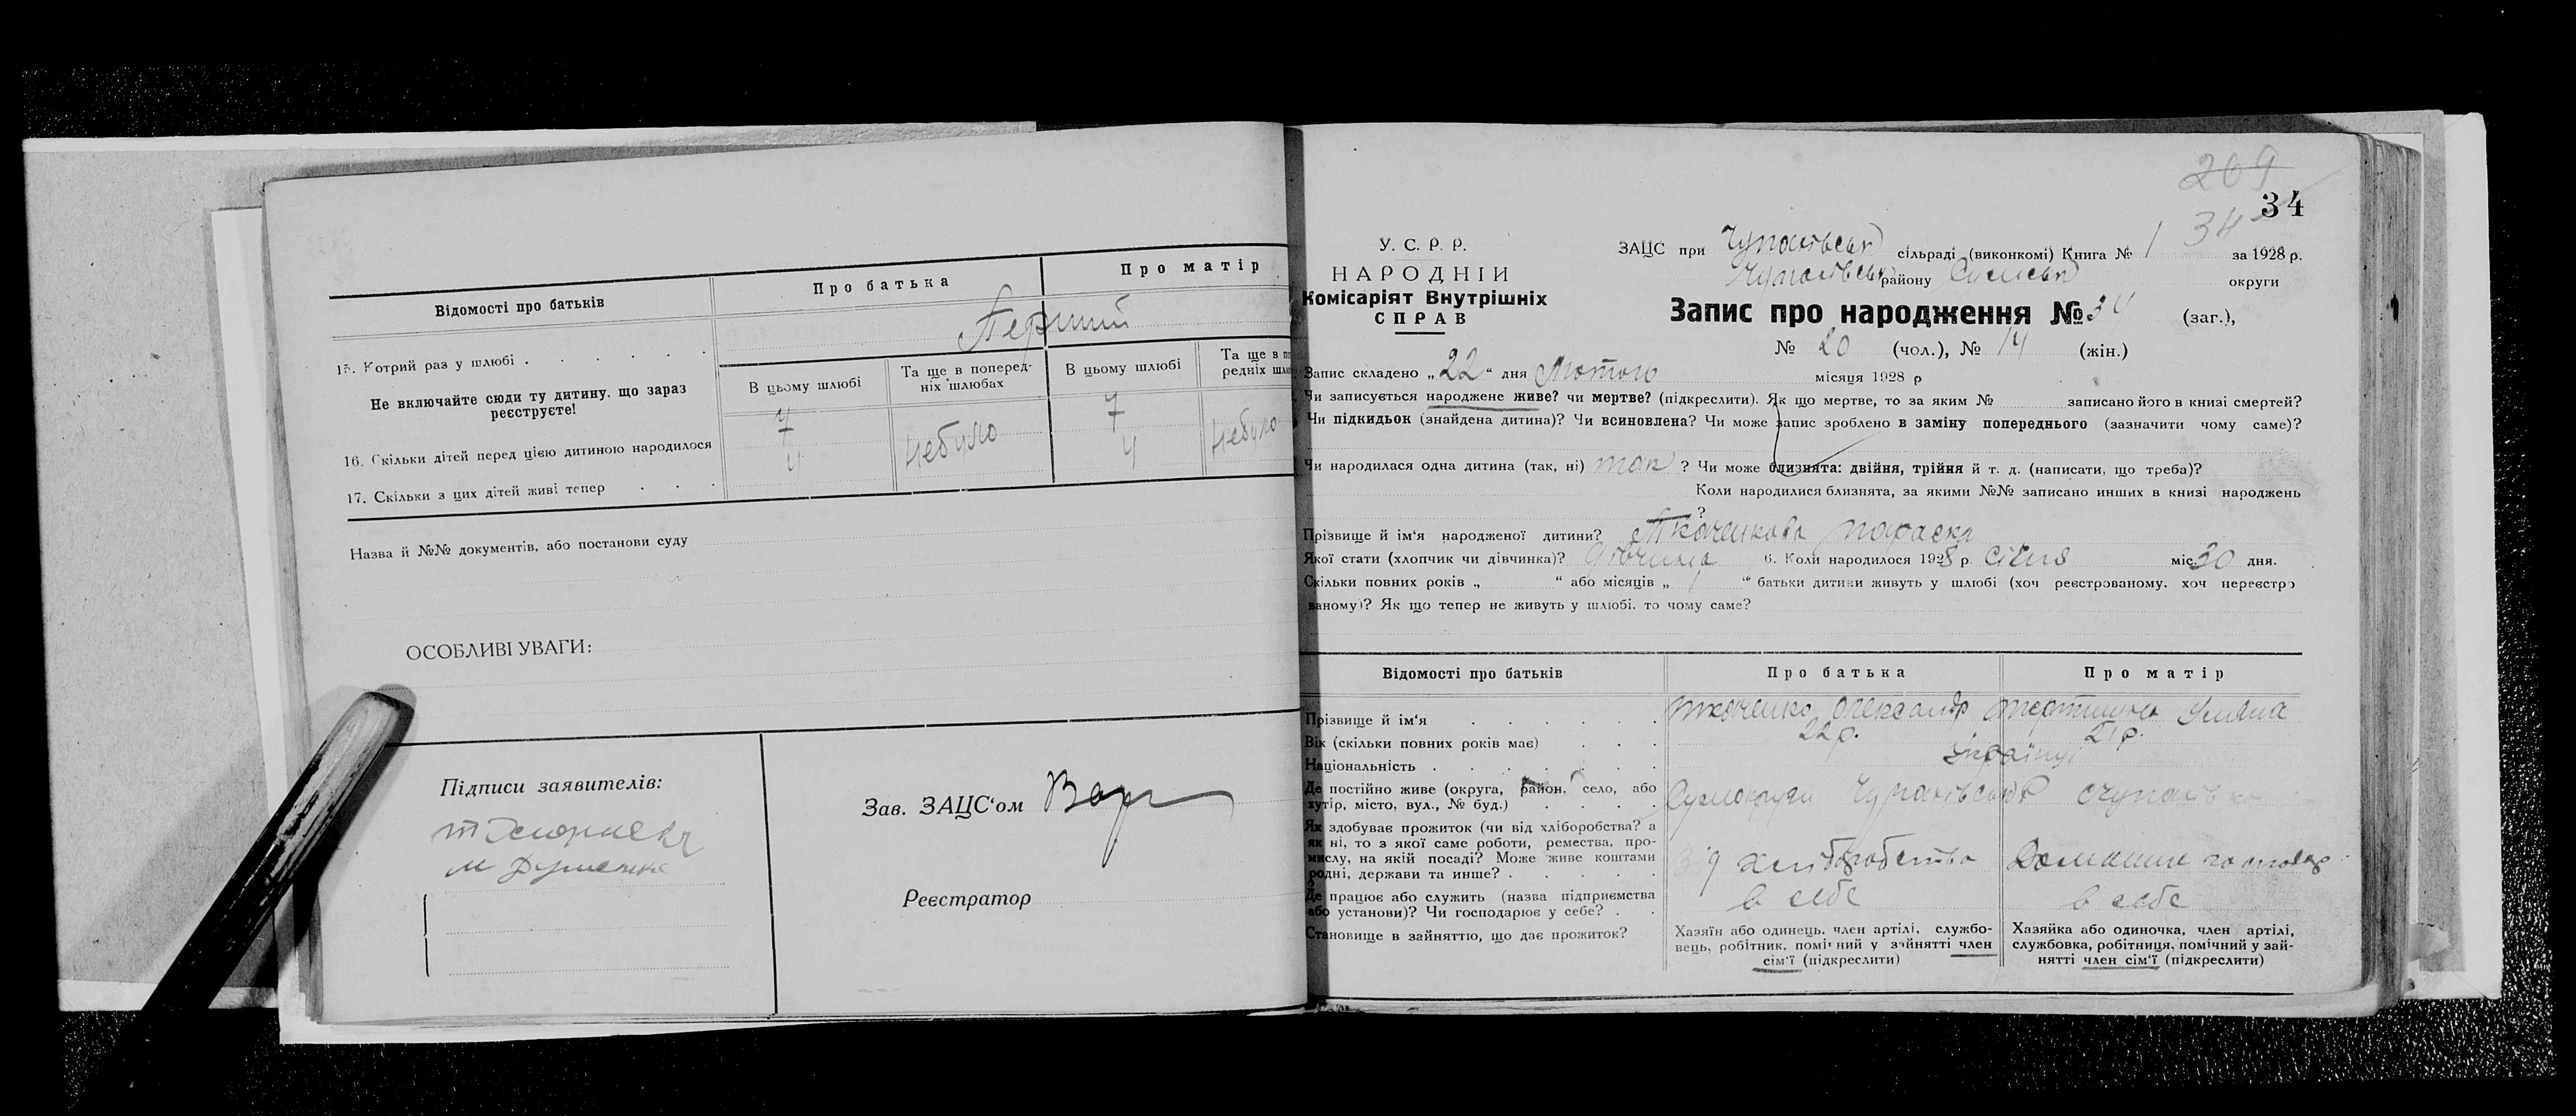 Відомості про батьків
Про батька
Про матір
15. Котрий раз у шлюбі
Перший
Не включайте сюди ту дитину, що зараз реєструєте!
В цьому шлюбі
Та ще в поперед-
ніх шлюбах
В цьому шлюбі
Та ще в по
редніх шлю
16. Скільки дітей перед цією дитиною народилося
7
Небуло
7
Небуло
17. Скільки з цих дітей живі тепер
4
4
Назва й №№ документів, або постанови суду
ОСОБЛИВІ УВАГИ:
Підписи заявителів:
Зав. ЗАЦС'ом
Реєстратор
209
34
У. С. Р. Р.
НАРОДНІЙ
Комісаріят Внутрішніх
СПРАВ
ЗАЦС при Чупахівськ сільраді (виконкомі) Книга № 1 34 за 1928 р.
Чупахівськ району Сумськ округи
Запис про народження № 34 (заг.),
№ 20 (чол.), № 14 (жін.)
Запис складено „22“ дня Лютого місяця 1928 р
Чи записується народжене живе? чи мертве? (підкреслити). Як що мертве, то за яким № записано його в книзі смертей?
Чи підкидьок (знайдена дитина)? Чи всиновлена? Чи може запис зроблено в заміну попереднього (зазначити чому саме)?
Чи народилася одна дитина (так, ні) так ? Чи може близнята: двійня, трійня й т. д. (написати, що треба)?
Коли народилися близнята, за якими №№ записано инших в книзі народжень
?
Прізвище й ім'я народженої дитини? Ткаченкова Параска
Якої стати (хлопчик чи дівчинка)? Дівчинка 6. Коли народилося 1928 р. Січня міс. 30 дня.
Скільки повних років „ “ або місяців „ 1 “ батьки дитини живуть у шлюбі (хоч реєстрованому, хоч нереєстро
ваному)? Як що тепер не живуть у шлюбі, то чому саме?
Відомості про батьків
Про батька
Про матір
Прізвище й ім'я
Ткаченко Олександр
Уляна
Вік (скільки повних років має)
22 р.
21 р.
Національність
Українці
Де постійно живе (округа, район, село, або
хутір, місто, вул., № буд.)
Сумокруги Чупахівський
Як здобуває прожиток (чи від хліборобства? а
як ні, то з якої саме роботи, ремества, про-
мислу, на якій посаді? Може живе коштами
родні, держави та инше?
Від хліборобства
Домашнє
Де працює або служить (назва підприємства
або установи)? Чи господарює у себе?
в себе
в себе
Становище в зайняттю, що дає прожиток?
Хазяїн або одинець, член артілі, службо-
вець, робітник, помічний у зайнятті член
сім'ї (підкреслити)
Хазяйка або одиночка, член артілі,
службовка, робітниця, помічний у зай-
нятті член сім'ї (підкреслити)